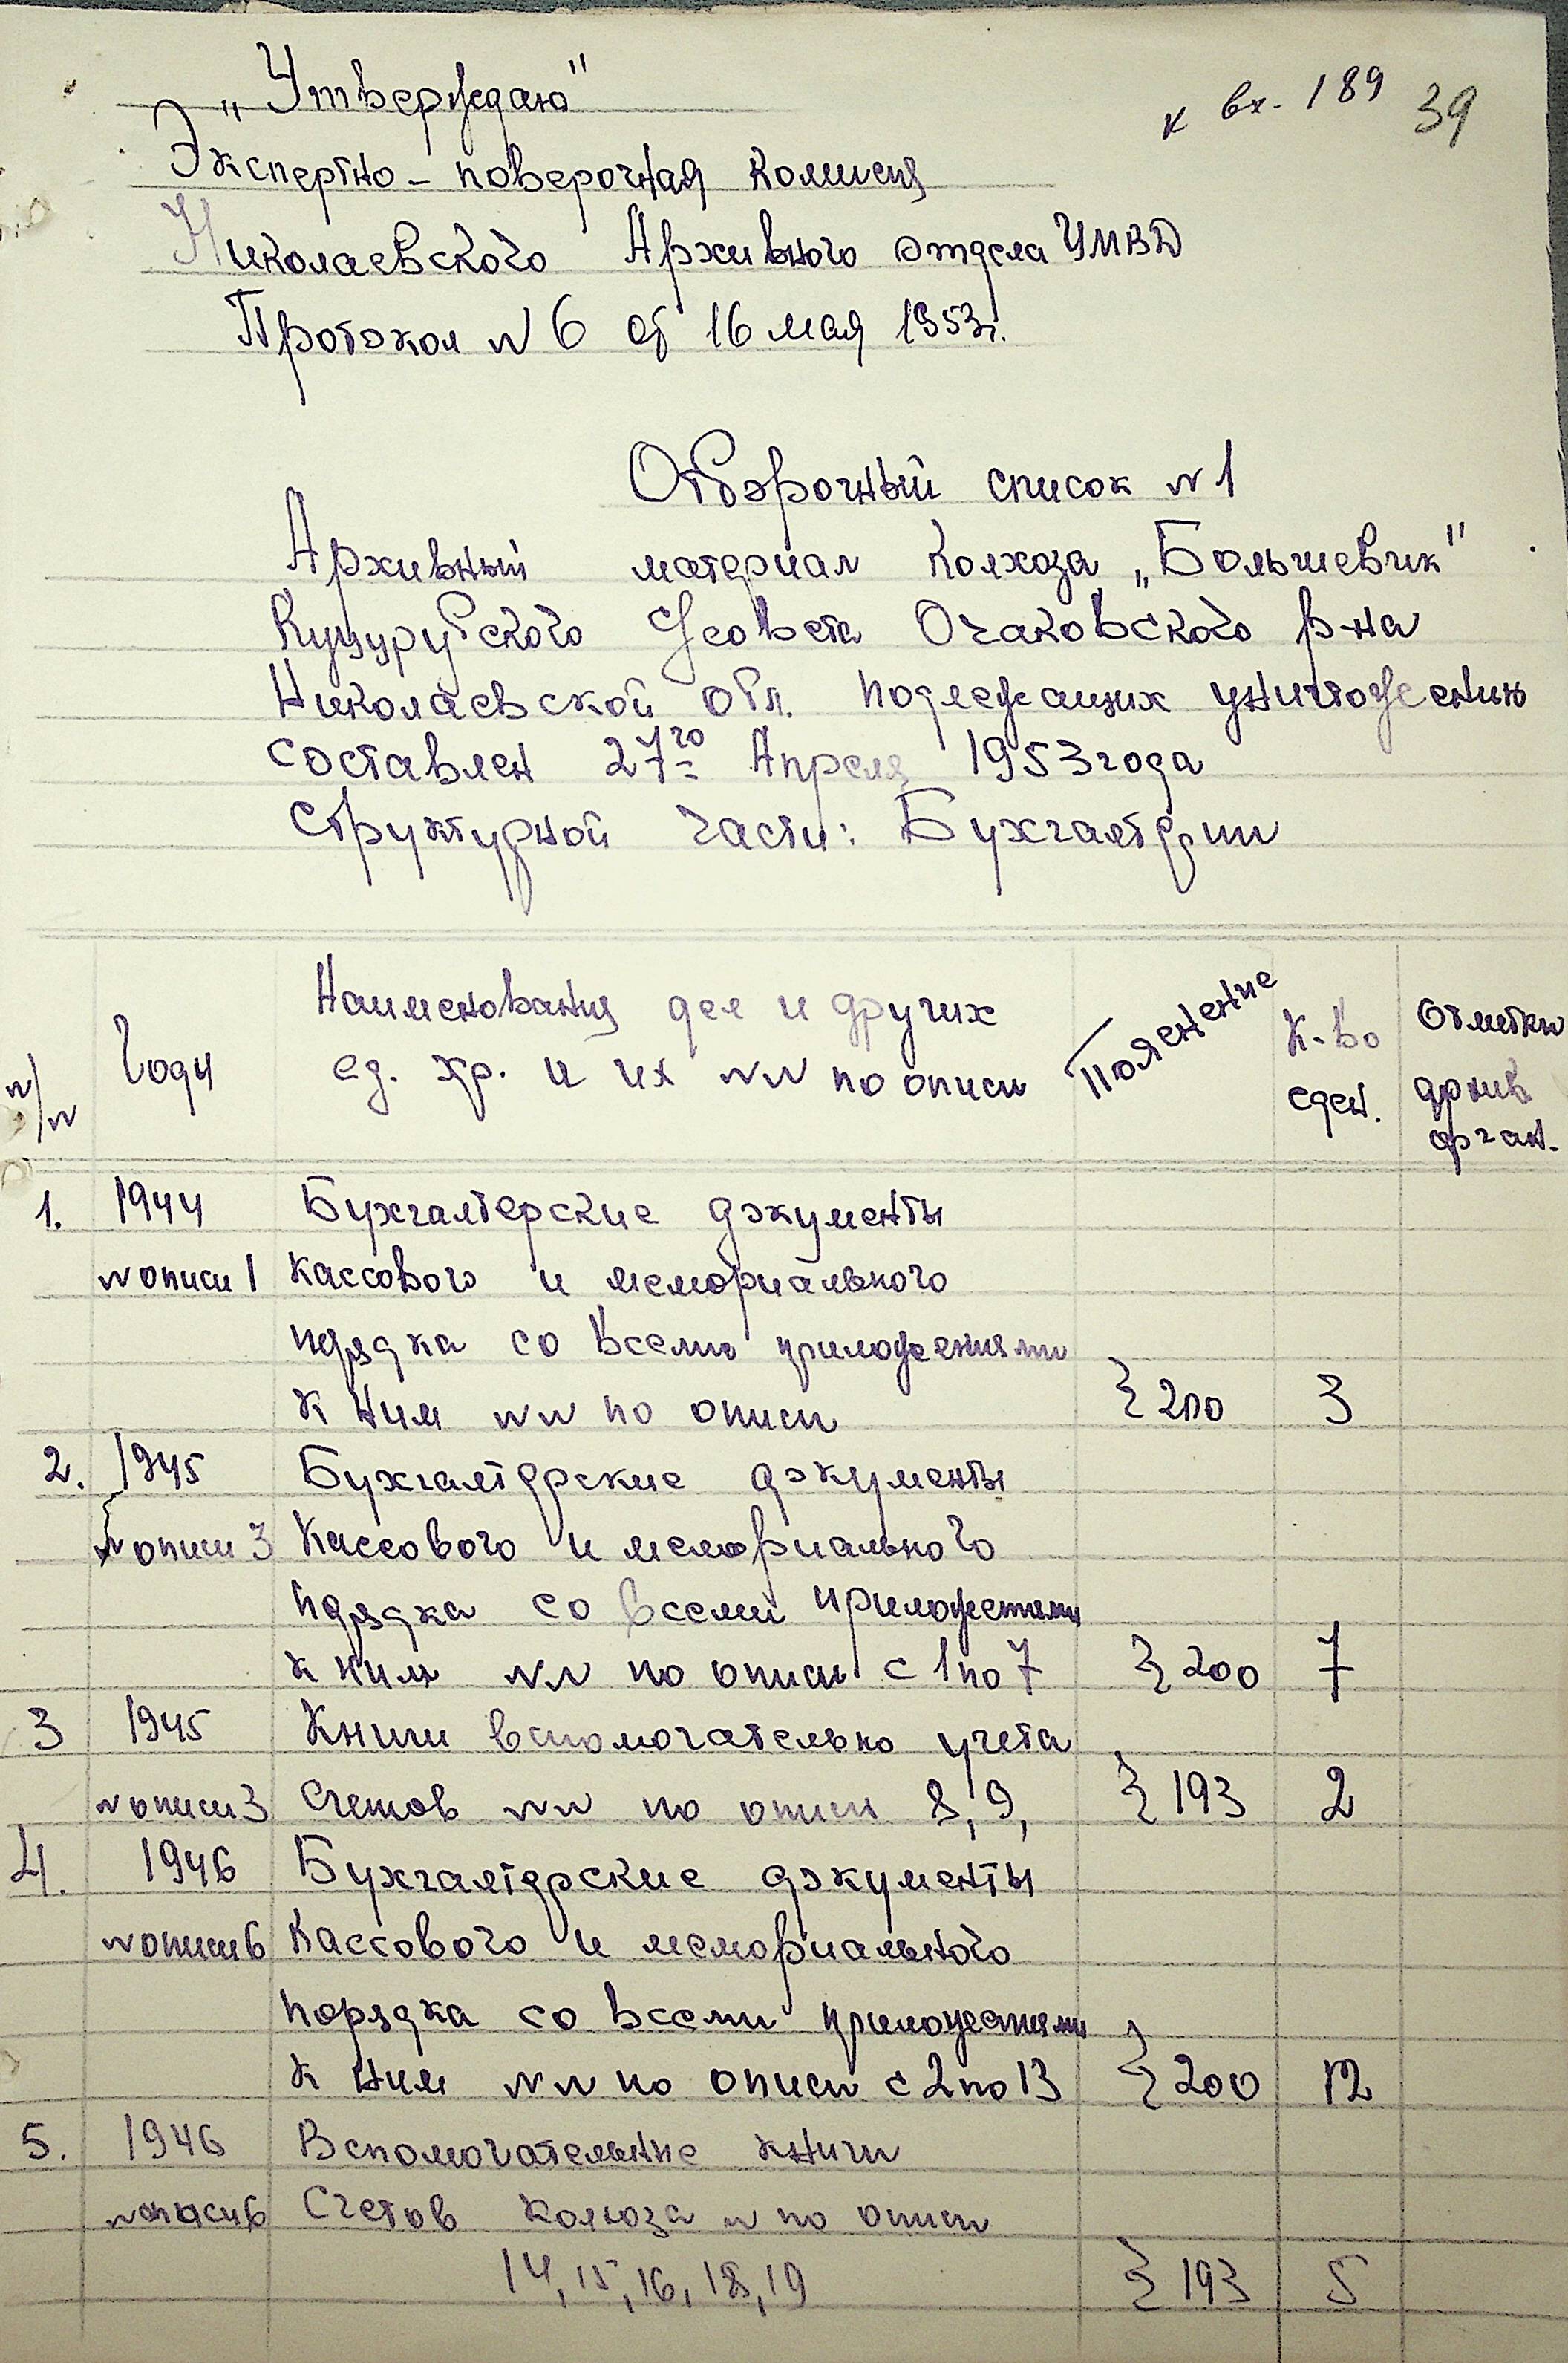 „Утверждаю"
к вх. 189 39
Экспертно-поверочная комисия
Николаевского Архивного отдела УМВД
Протокол N 6 от 16 мая 1953г.
Отборочный список N 1
Архивный материал колхоза „Большевик"
Куцурубского Сесовета Очаковского р-на
Николаевской обл. подлежащих уничтожению
составлен 27го Апреля 1953 года
Структурной части: Бухгалтерии
N/N Годы Наименования дел и других ед. хр. и их NN по описи Пояснение К-во един. Отметки архив. орган.
1. 1944 Бухгалтерские документы
N описи 1 кассового и мемориального
порядка со всеми приложениями
к ним NN по описи } 200 3
2. 1945 Бухгалтерские документы
N описи 3 кассового и мемориального
порядка со всеми приложениями
к ним NN по описи с 1 по 7 } 200 7
3 1945 Книги вспомогательно учета
N описи 3 счетов NN по описи 8, 9, } 193 2
4. 1946 Бухгалтерские документы
N описи 6 кассового и мемориального
порядка со всеми приложениями
к ним NN по описи с 2 по 13 } 200 12
5. 1946 Вспомогательные книги
N описи 6 Счетов колхоза N по описи
14, 15, 16, 18, 19 } 193 5